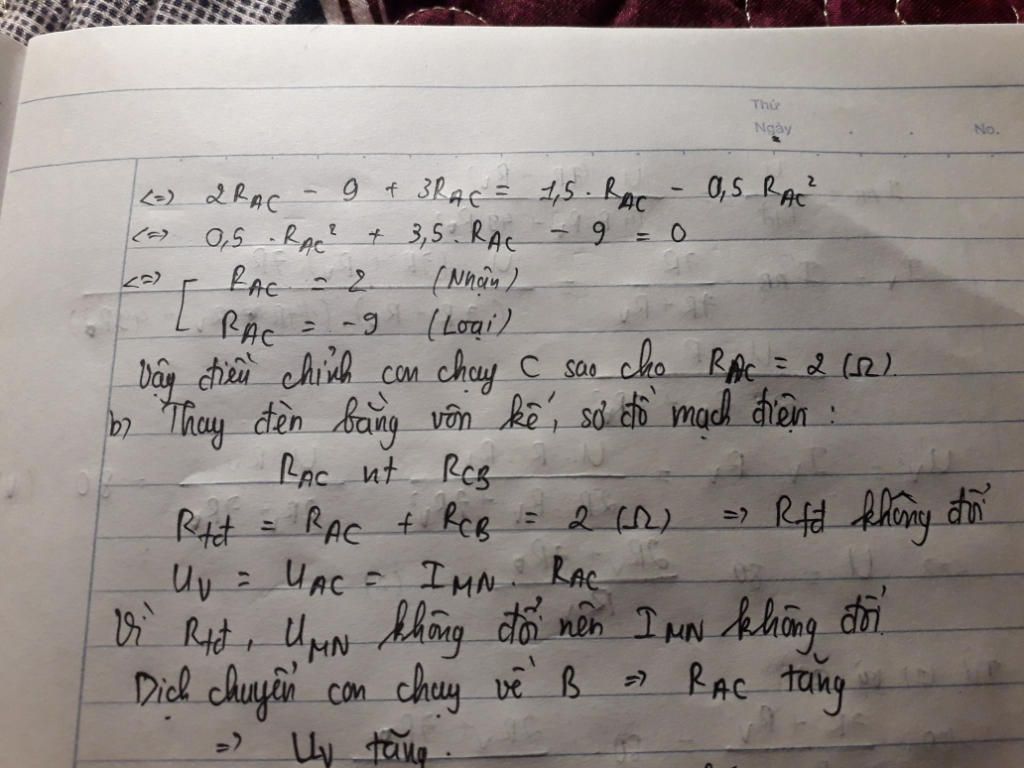 Thứ
Ngày . . No.
<=> 2R_AC - 9 + 3R_AC = 1,5 . R_AC - 0,5 R_AC²
<=> 0,5 . R_AC² + 3,5 . R_AC - 9 = 0
<=> [ R_AC = 2 (Nhận)
R_AC = -9 (Loại)
Vậy điều chỉnh con chạy C sao cho R_AC = 2 (Ω).
b) Thay đèn bằng vôn kế, sơ đồ mạch điện :
R_AC nt R_CB
R_tđ = R_AC + R_CB = 2 (Ω) => R_tđ không đổi
U_V = U_AC = I_MN . R_AC
Vì R_tđ, U_MN không đổi nên I_MN không đổi.
Dịch chuyển con chạy về B => R_AC tăng
=> U_V tăng.